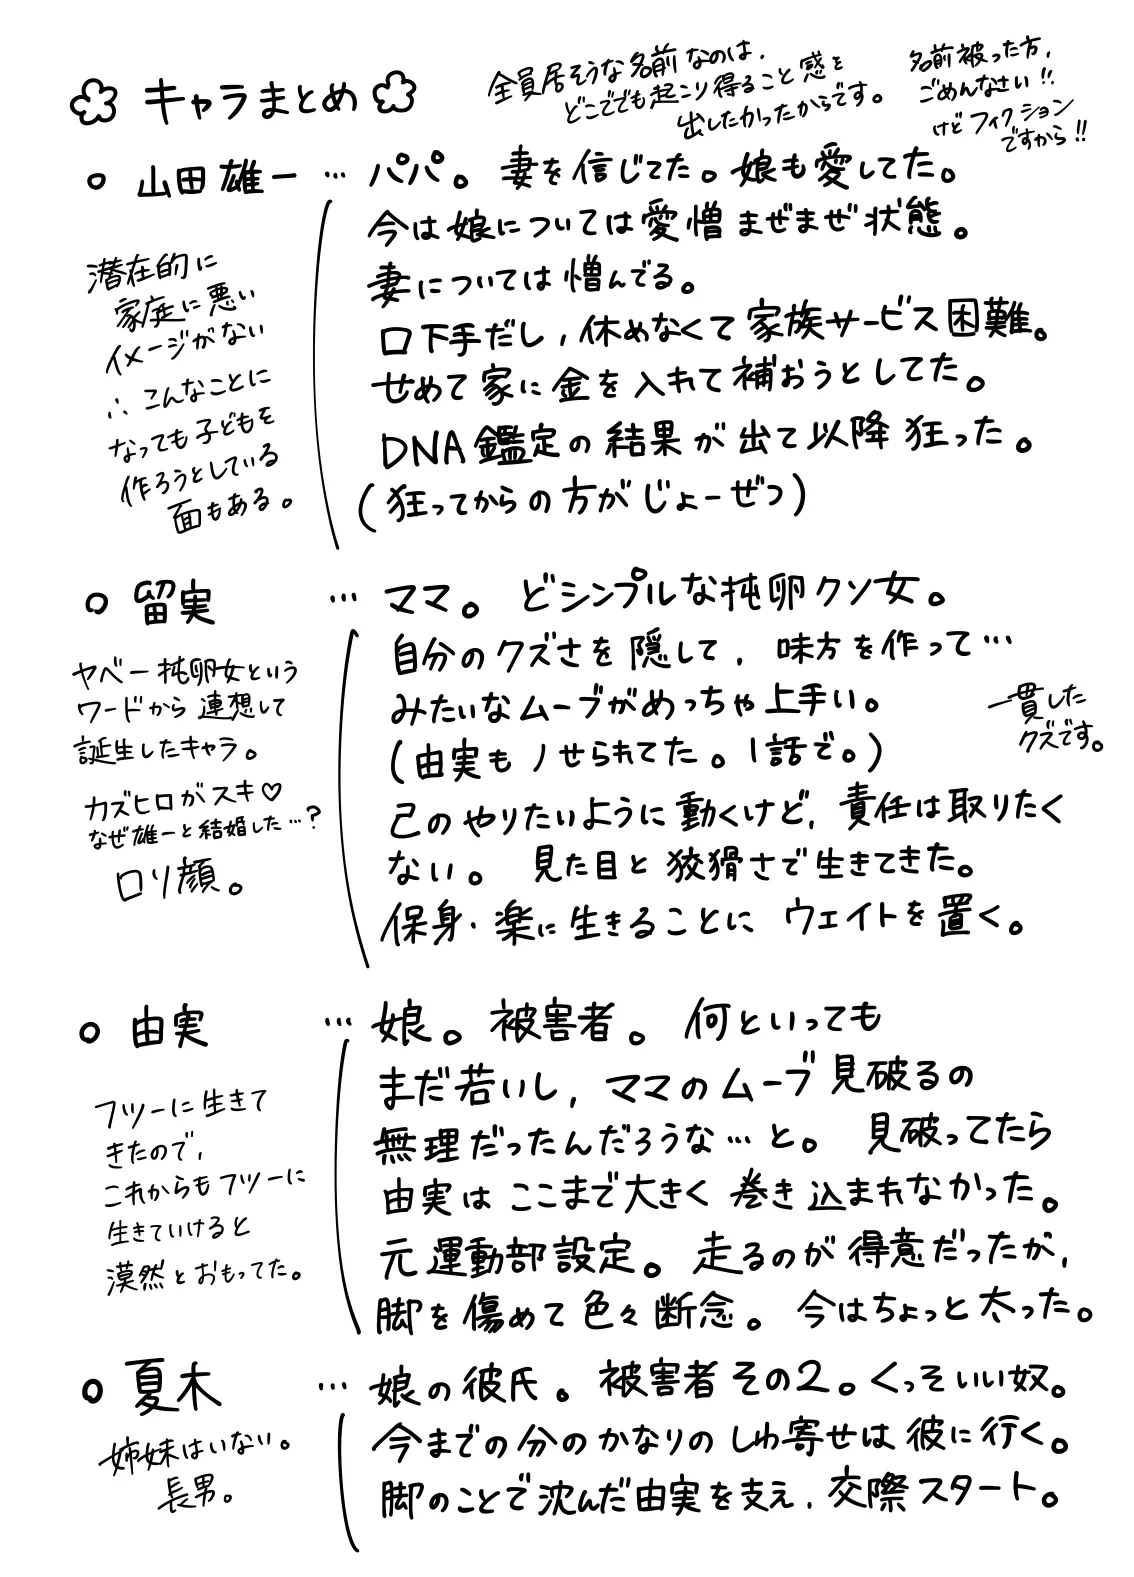 キャラまとめ
全員居そうな名前なのは、
どこででも起こり得ること感を
出したかったからです。
名前被った方、
ごめんなさい!!
けどフィクション
ですから!!
○ 山田雄一 … パパ。 妻を信じてた。娘も愛してた。
今は娘については愛憎まぜまぜ状態。
妻については憎んでる。
口下手だし、休めなくて家族サービス困難。
せめて家に金を入れて補おうとしてた。
DNA鑑定の結果が出て以降狂った。
(狂ってからの方がじょーぜつ)
潜在的に
家庭に悪い
イメージがない
∴ こんなことに
なっても子どもを
作ろうとしている
面もある。
○ 留実 … ママ。 どシンプルな托卵クソ女。
自分のクズさを隠して、味方を作って…
みたいなムーブがめっちゃ上手い。
(由実もノせられてた。1話で。)
己のやりたいように動くけど、責任は取りたく
ない。 見た目と狡猾さで生きてきた。
保身・楽に生きることに ウェイトを置く。
ヤベー托卵女という
ワードから連想して
誕生したキャラ。
カズヒロがスキ♡
なぜ雄一と結婚した…?
ロリ顔。
一貫した
クズです。
○ 由実 … 娘。被害者。 何といっても
まだ若いし、ママのムーブ見破るの
無理だったんだろうな…と。 見破ってたら
由実はここまで大きく巻き込まれなかった。
元運動部設定。 走るのが得意だったが、
脚を傷めて色々断念。 今はちょっと太った。
フツーに生きて
きたので、
これからもフツーに
生きていけると
漠然とおもってた。
○ 夏木 … 娘の彼氏。被害者その2。くっそいい奴。
今までの分のかなりのしわ寄せは彼に行く。
脚のことで沈んだ由実を支え、交際スタート。
姉妹はいない。
長男。